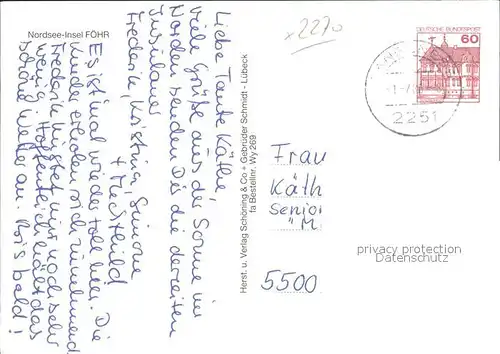 Nordsee-Insel FÖHR
Liebe Tante Käthe,
viele Grüße aus der Sonne im
Norden senden Dir die derzeiten
Insulaner
Frederik, Kristina, Simone
+ Mechthild!
Es ist mal wieder toll hier. Die
Kinder erholen sich zunehmend
Frederik hustet nur noch sehr
wenig. Hoffentlich hält das
schöne Wetter an. Bis bald!
Herst. u. Verlag Schöning & Co + Gebrüder Schmidt - Lübeck
fa Bestellnr. Wy 269
x2270
DEUTSCHE BUNDESPOST
60
2251
Frau
Käth
Senior
"M
5500
privacy protection
Datenschutz